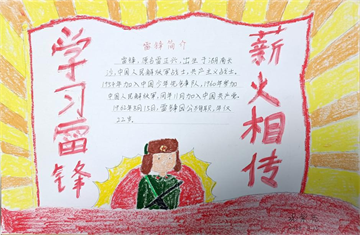 学习雷锋
薪火相传
雷锋简介
雷锋，原名雷正兴，出生于湖南长
沙，中国人民解放军战士，共产主义战士，
1954年加入中国少年先锋队，1960年参加
中国人民解放军，同年11月加入中国共产党。
1962年8月15日，雷锋因公殉职，年仅
22岁。